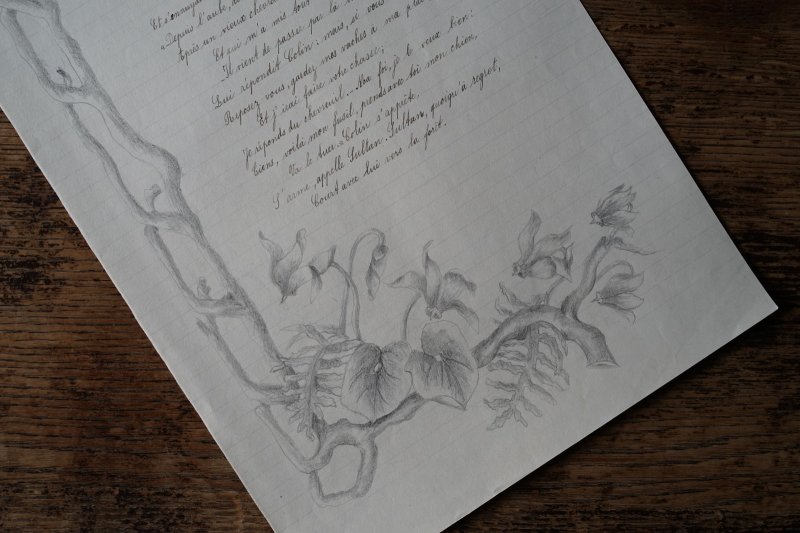 Et s'ennuyai
"Depuis l'aube,
Après un vieux chevre
Et qui m'a mis tou
Il vient de passer par là
Lui répondit Colin: mais, si vous
Reposez vous, gardez mes vaches à ma pla
Et j'irai faire votre chasse;
Je réponds du chevreuil. _Ma foi, je le veux bien:
Tiens, voilà mon fusil, prends avec toi mon chien,
Va le tuer." Colin s'apprête,
S'arme, appelle Sultan. Sultan, quoiqu'à regret,
Court avec lui vers la forêt.